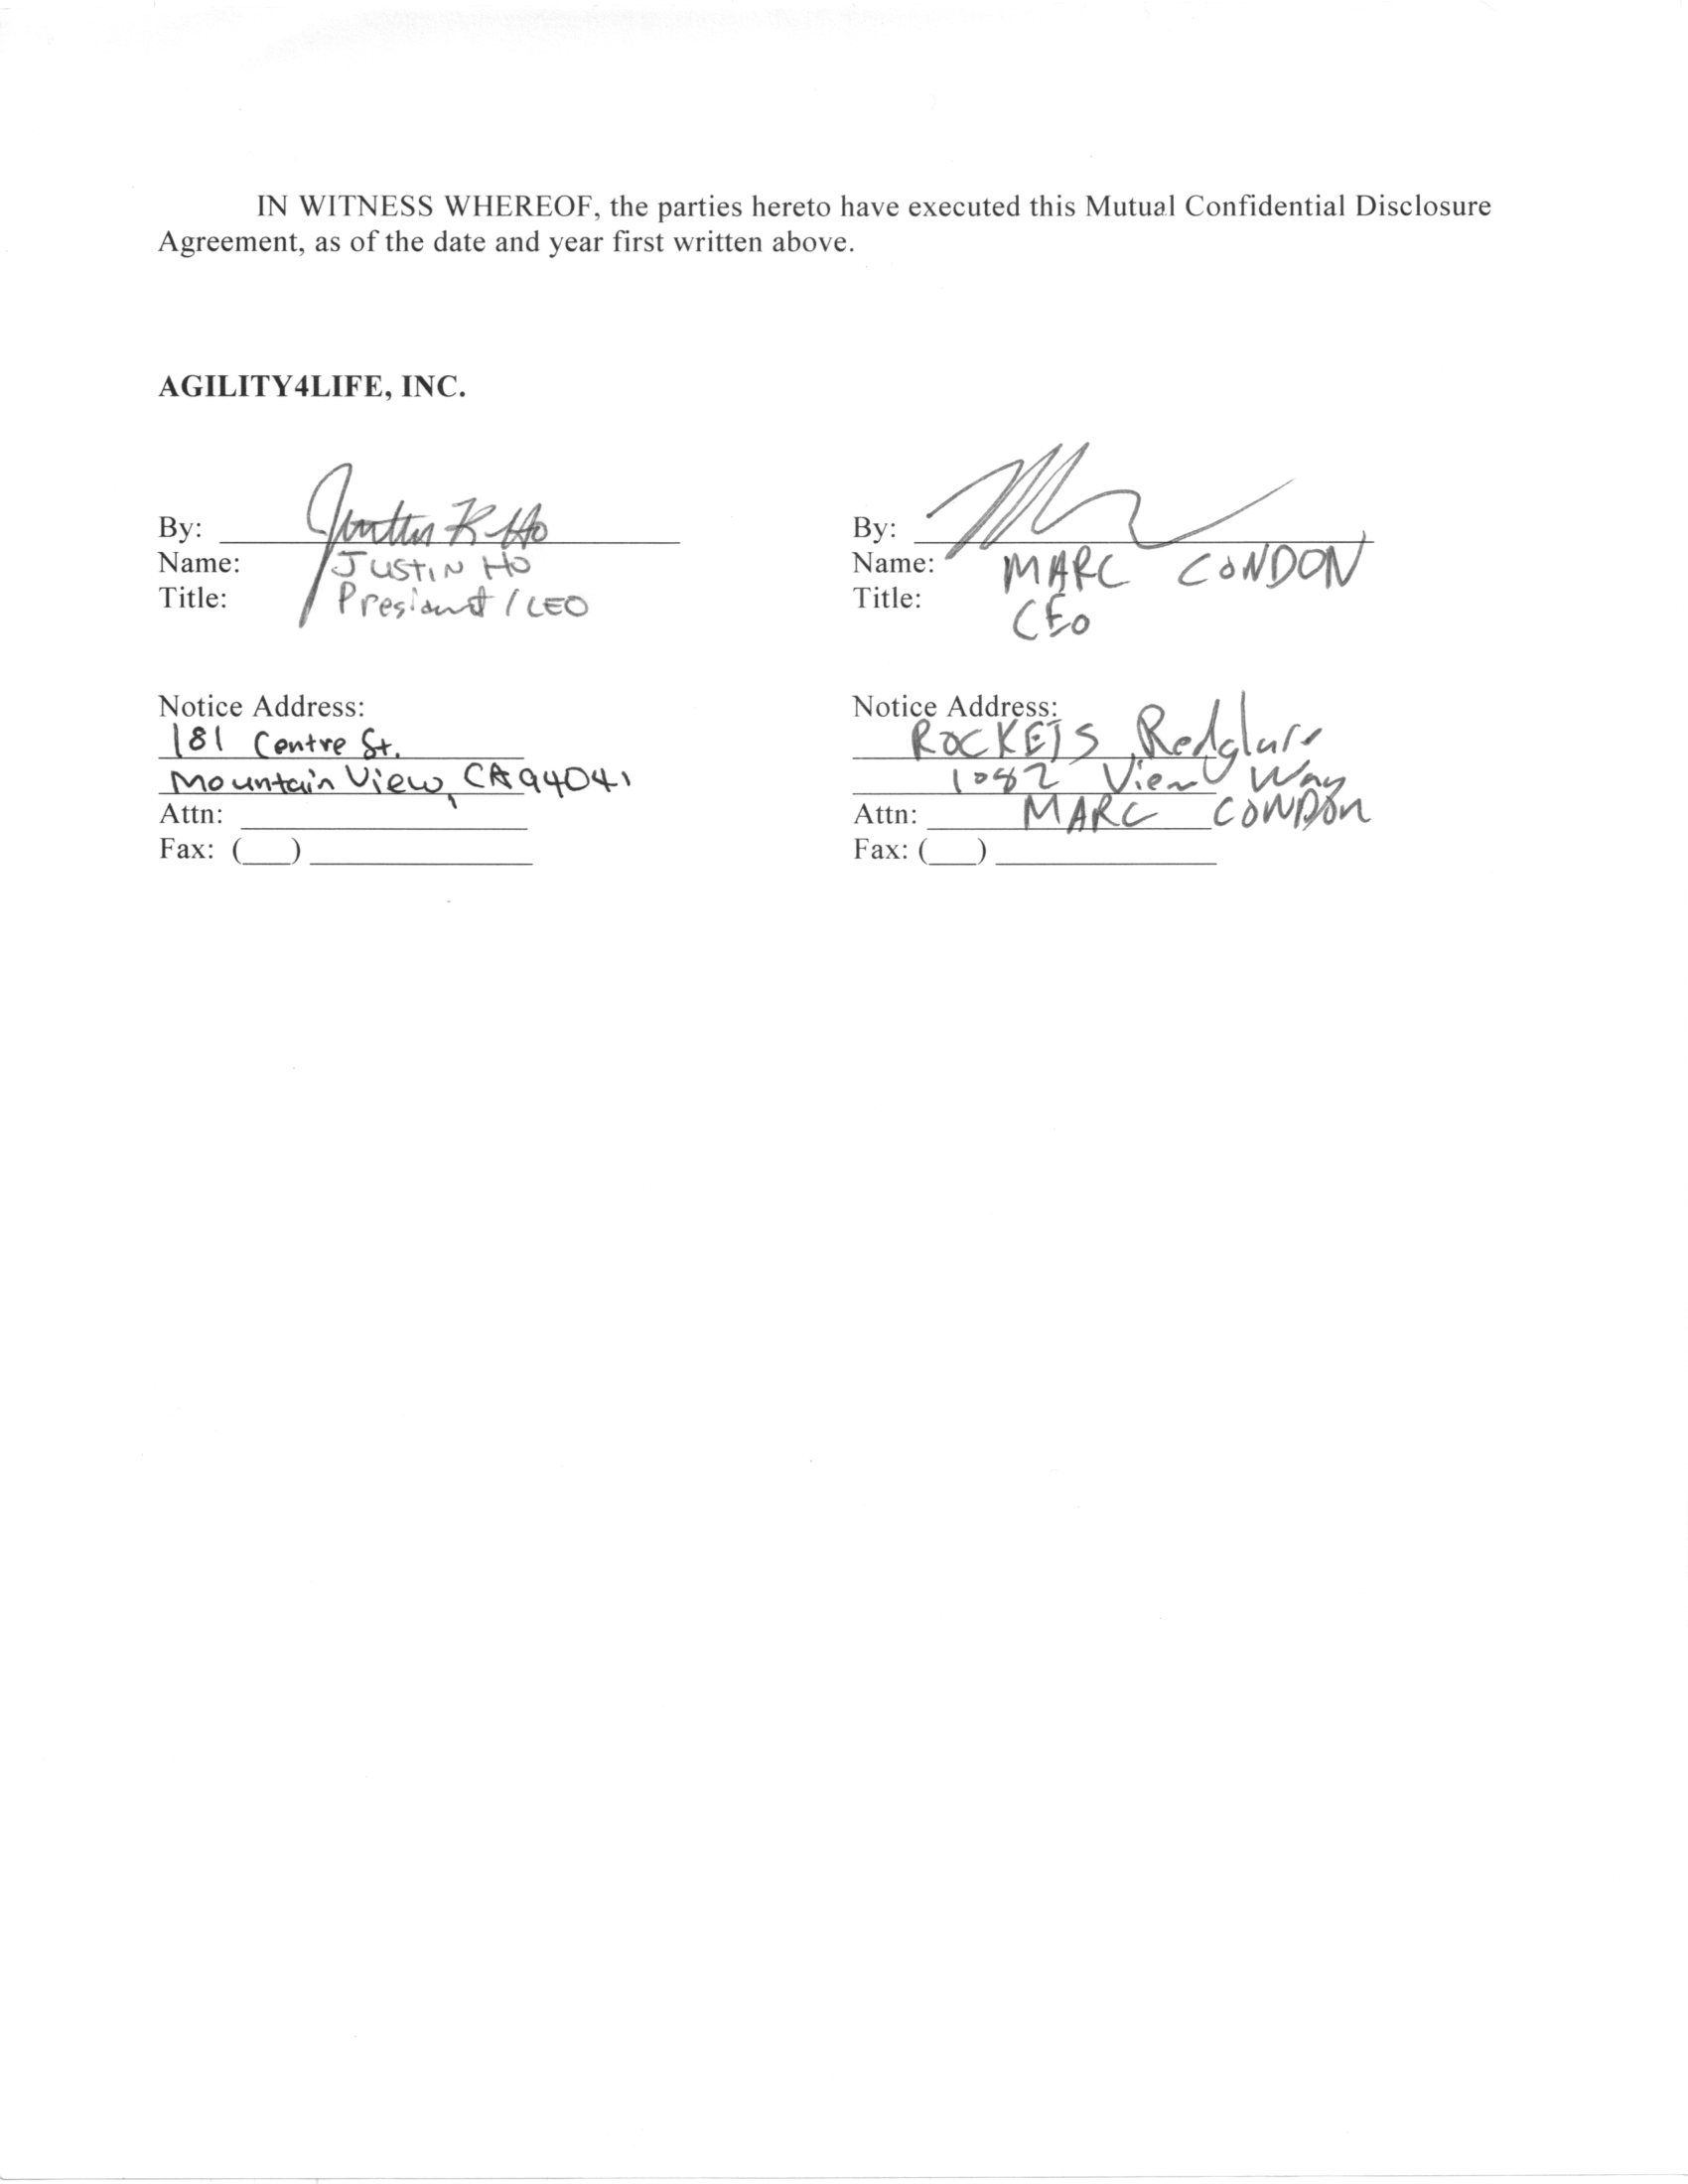 IN WITNESS WHEREOF, the parties hereto have executed this Mutual Confidential Disclosure
Agreement, as of the date and year first written above.
AGILITY4LIFE, INC.
By:
Name: JUSTIN HO
Title: President / CEO
Notice Address:
181 Centre St.
Mountain View, CA 94041
Attn:
Fax: ( )
By:
Name: MARC CONDON
Title: CEO
Notice Address:
ROCKETS Redglare
1082 View Way
Attn: MARC CONDON
Fax: ( )